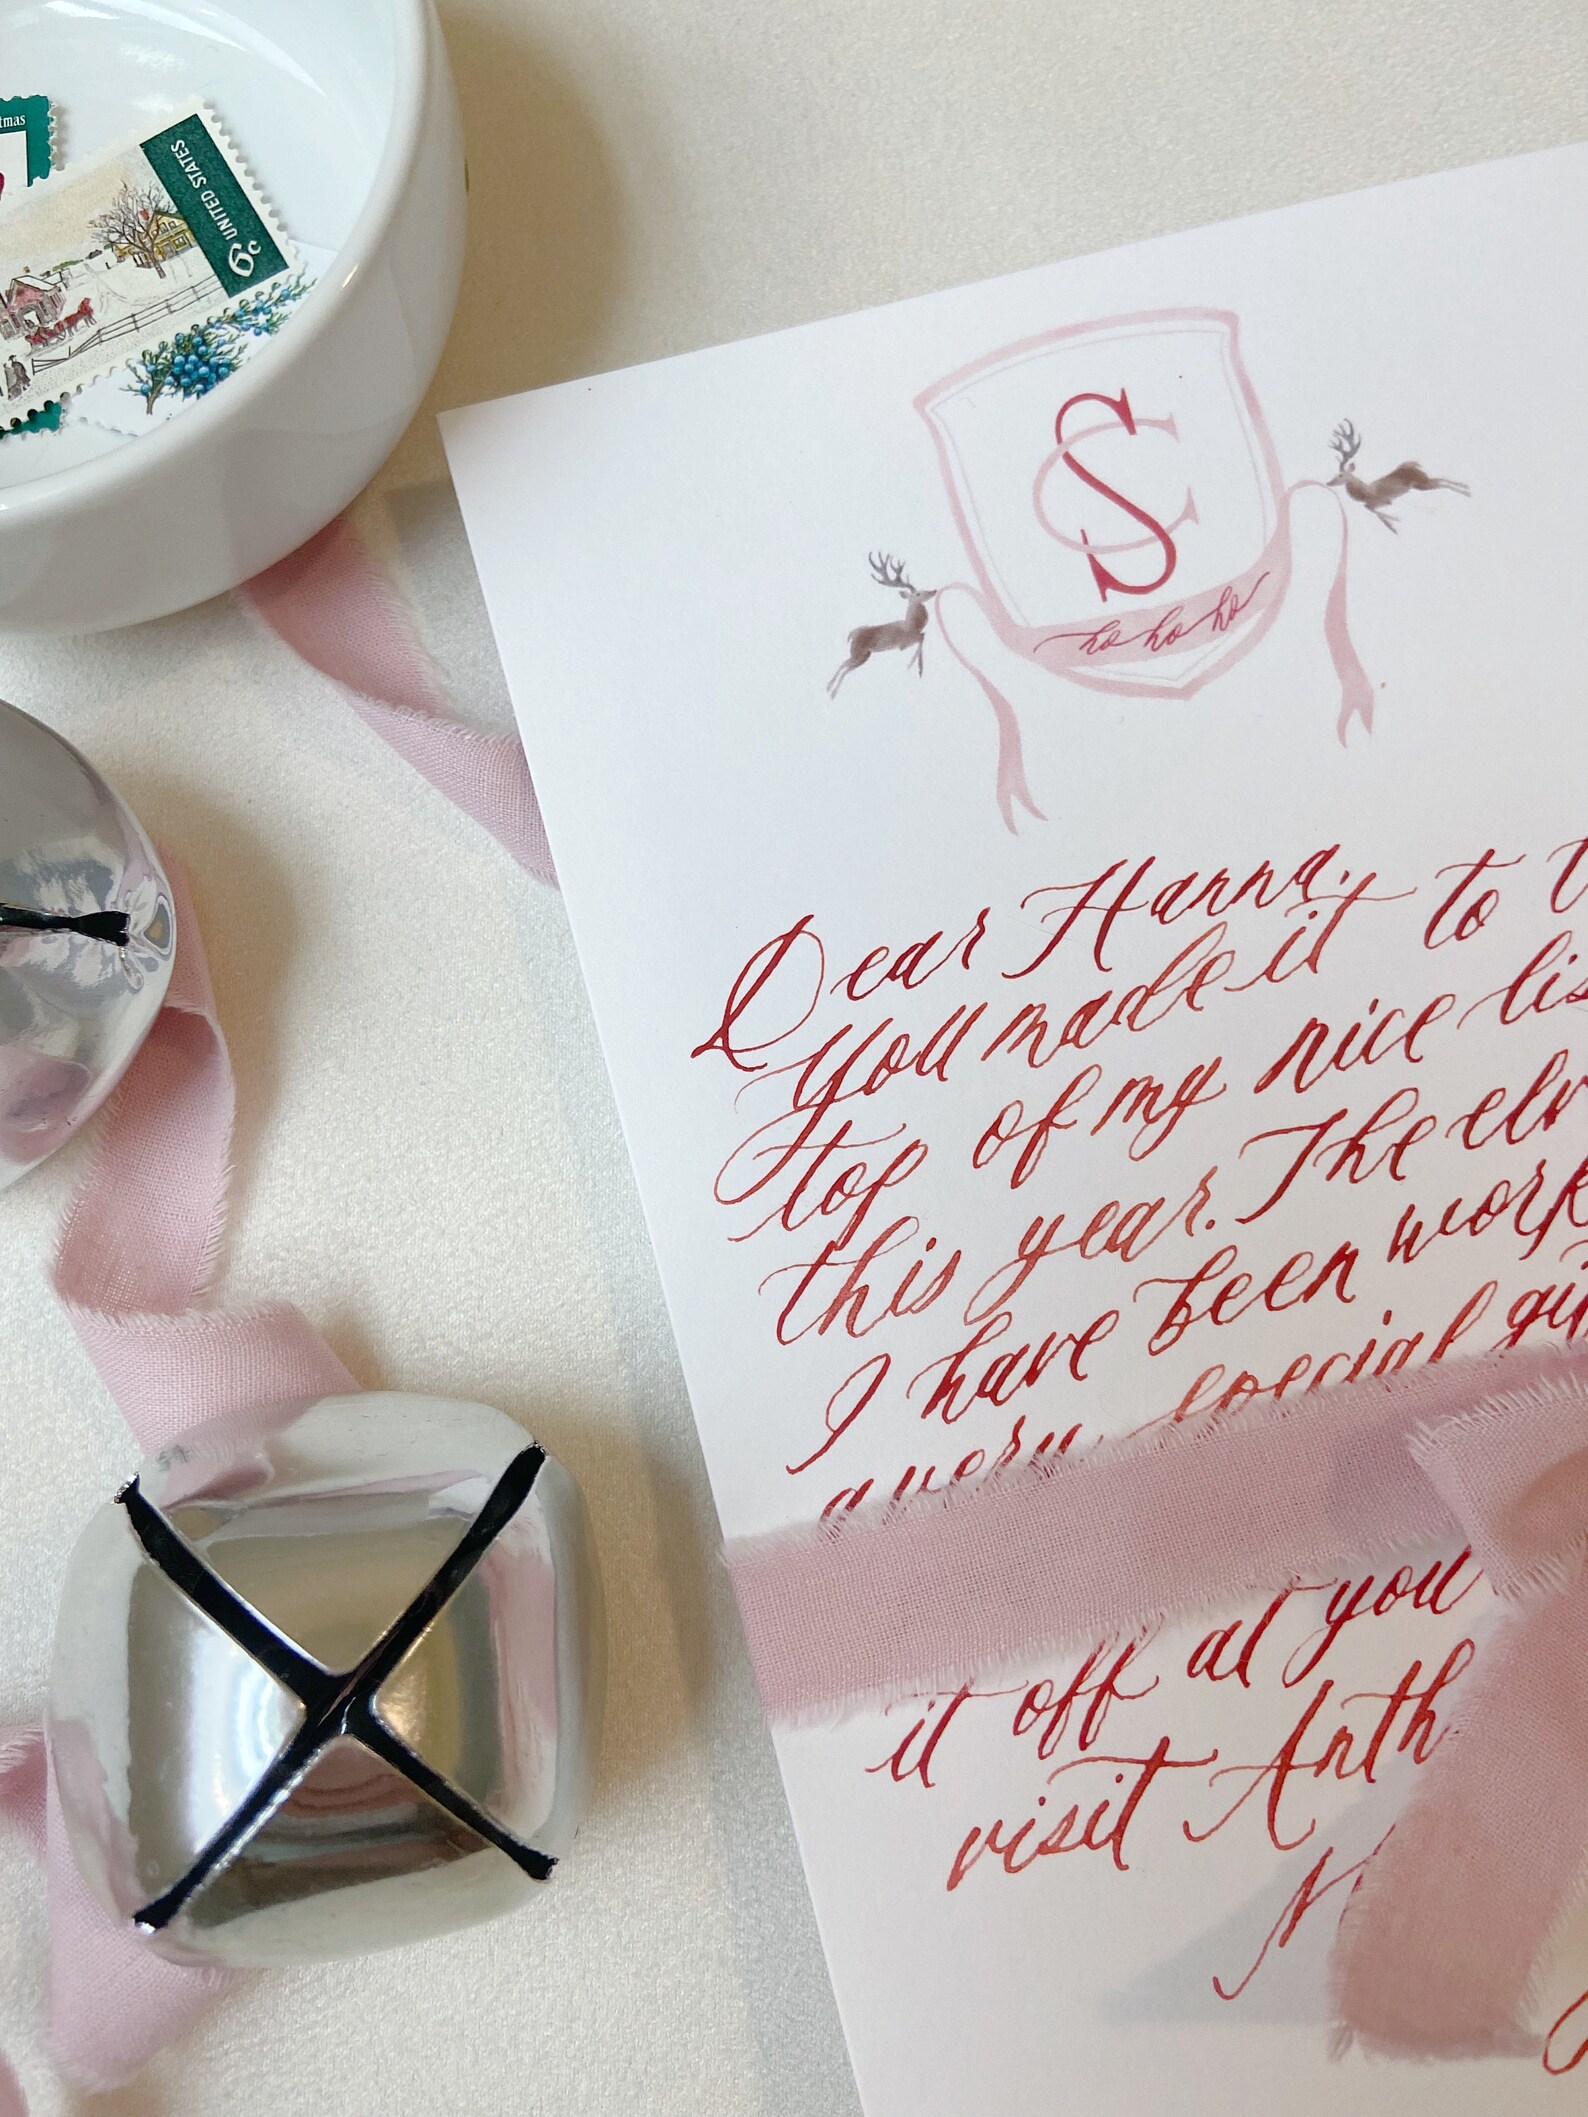 tmas
UNITED STATES
6c
SC
ho ho ho
Dear Hanna,
You made it to
top of my nice
this year. The
I have been
a very special
it off at you
visit